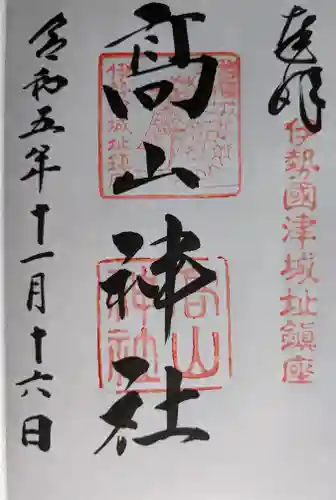 奉拝
伊勢國津城址鎮座
髙山神社
高山神社
令和五年十一月十六日